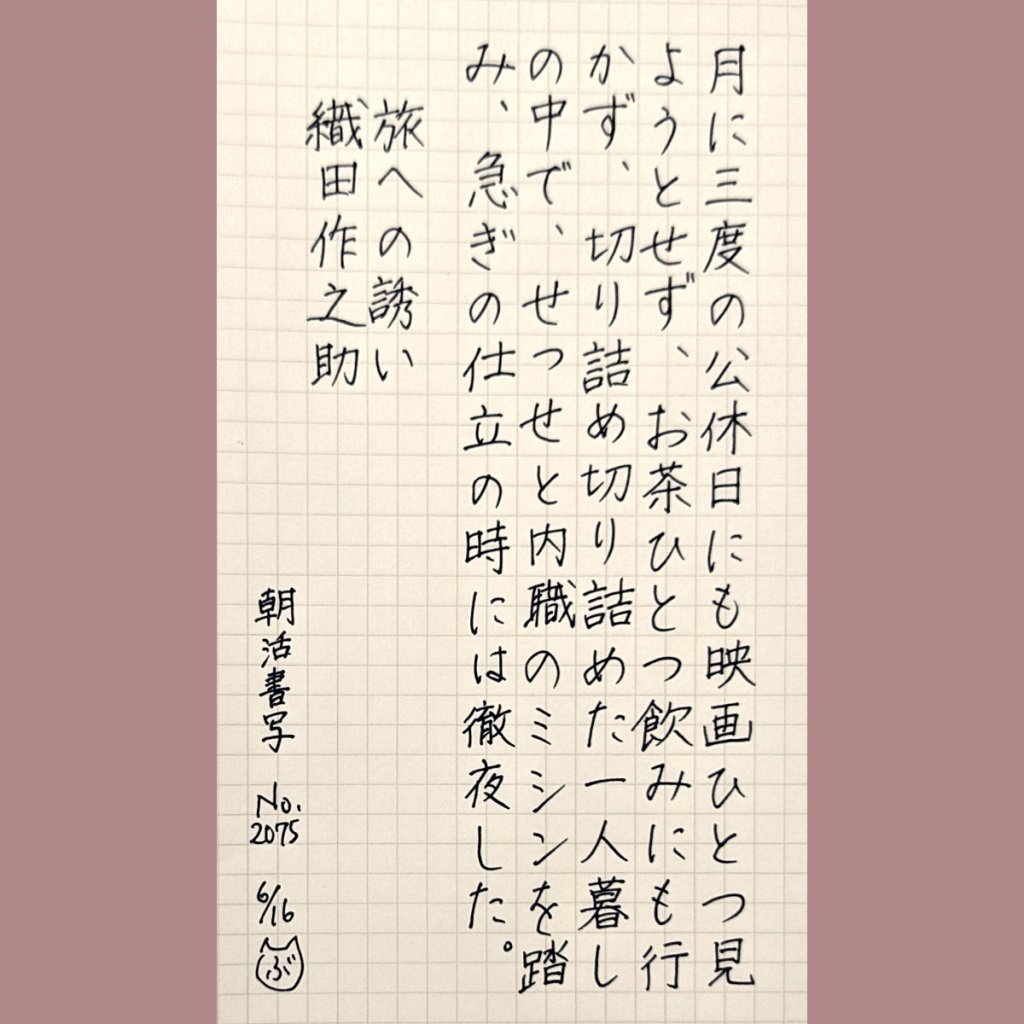 月に三度の公休日にも映画ひとつ見
ようとせず、お茶ひとつ飲みにも行
かず、切り詰め切り詰めた一人暮し
の中で、せっせと内職のミシンを踏
み、急ぎの仕立の時には徹夜した。
旅への誘い
織田作之助
朝活書写 No.2075 6/16 ぶ